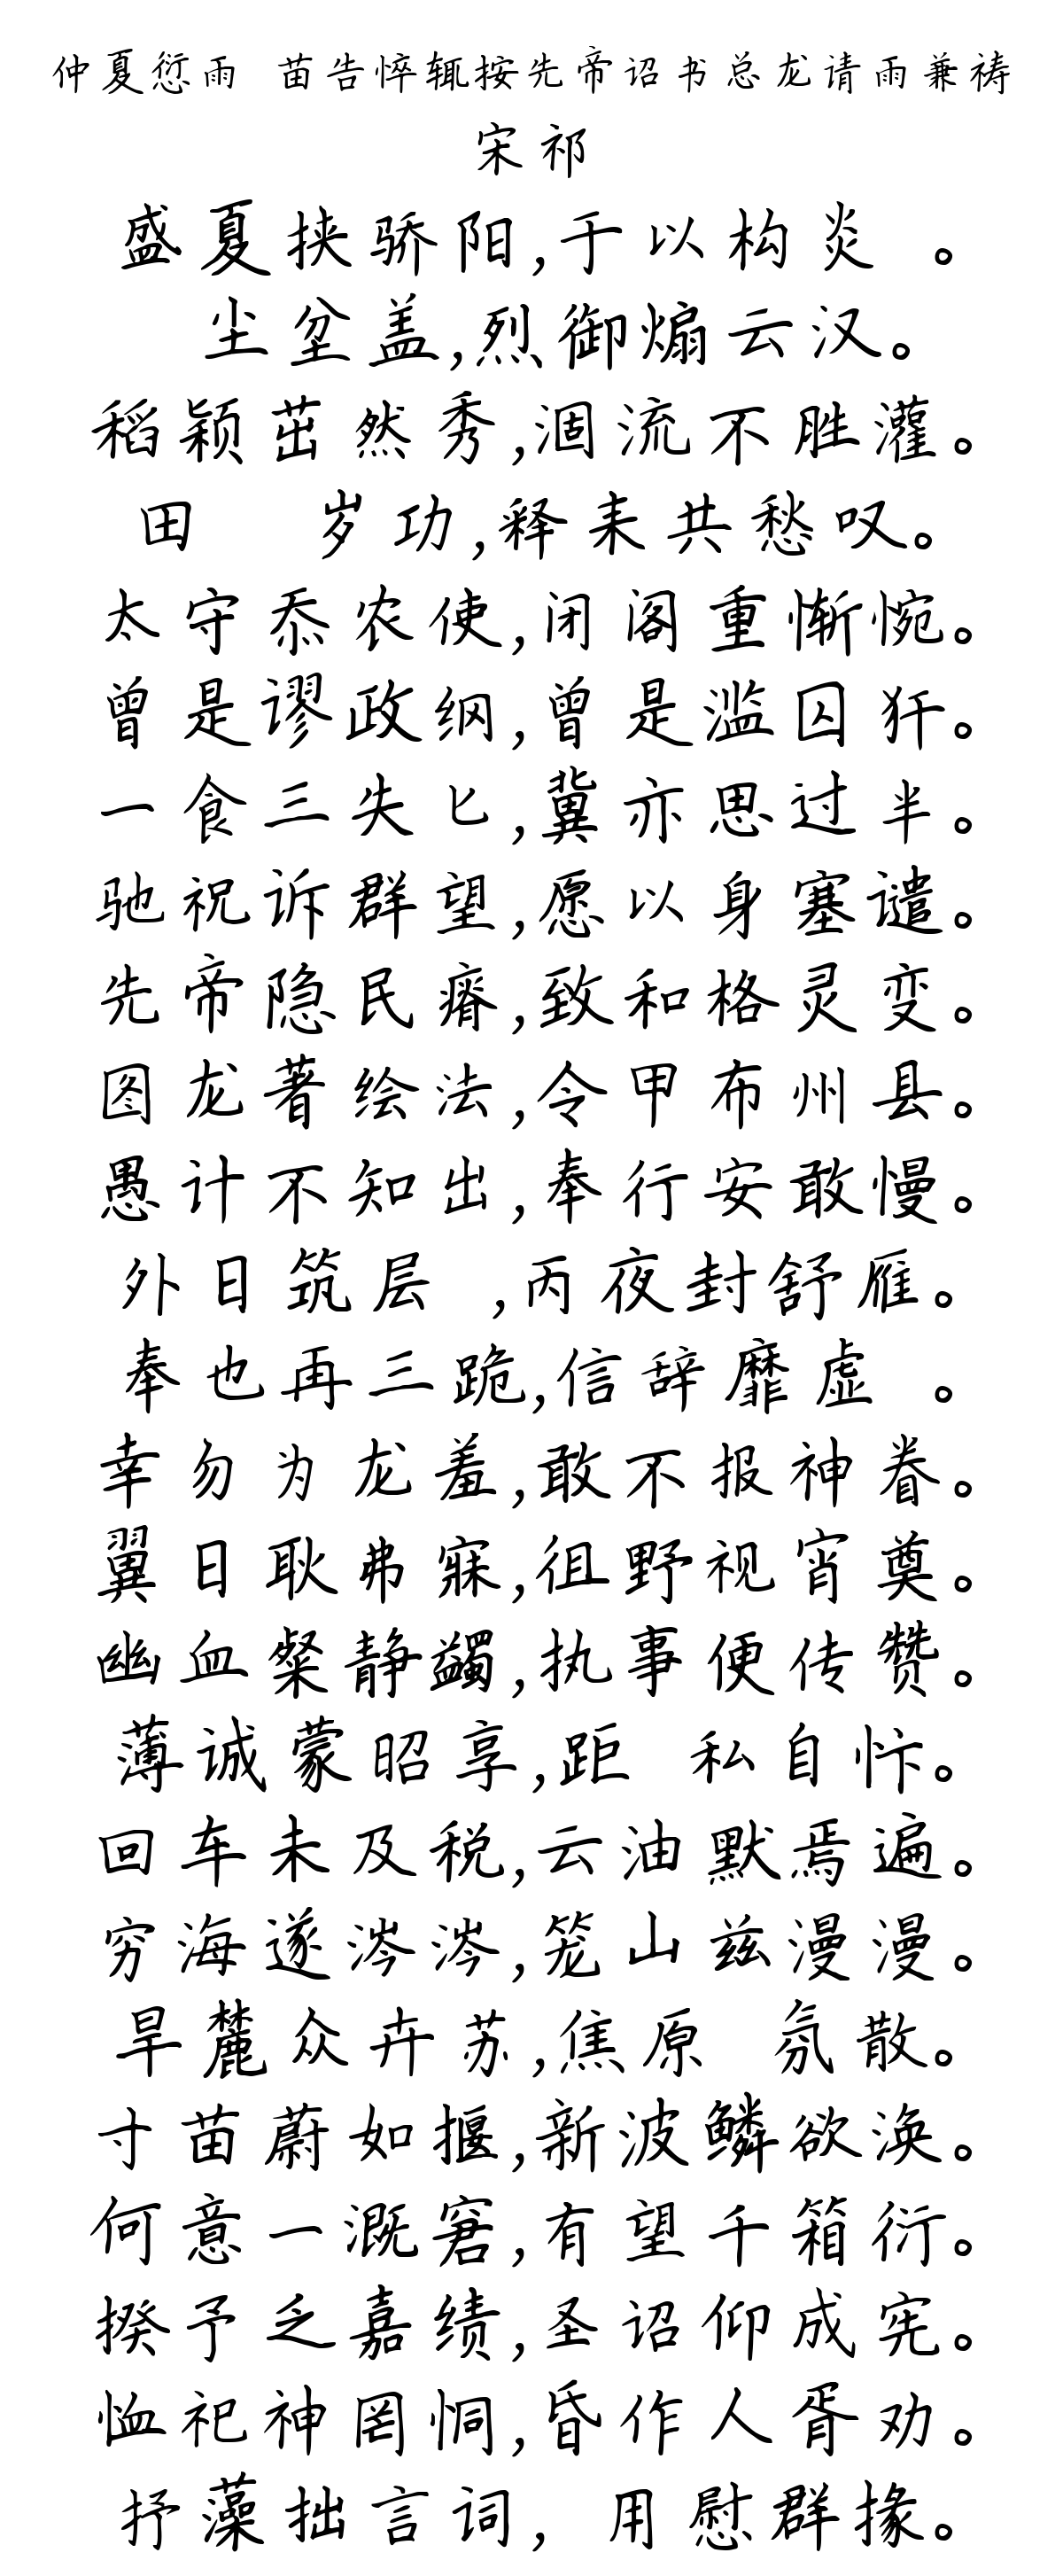 仲夏愆雨 苗告悴辄按先帝诏书总龙请雨兼祷
宋祁
盛夏挟骄阳,于以构炎 。
尘坌盖,烈御煽云汉。
稻颖茁然秀,涸流不胜灌。
田 岁功,释耒共愁叹。
太守忝农使,闭阁重惭惋。
曾是谬政纲,曾是滥囚犴。
一食三失匕,冀亦思过半。
驰祝诉群望,愿以身塞谴。
先帝隐民瘠,致和格灵变。
图龙著绘法,令甲布州县。
愚计不知出,奉行安敢慢。
外日筑层 ,丙夜封舒雁。
奉也再三跪,信辞靡虚 。
幸勿为龙羞,敢不报神眷。
翼日耿弗寐,徂野视宵奠。
幽血粲静蠲,执事便传赞。
薄诚蒙昭享,距 私自忭。
回车未及税,云油默焉遍。
穷海遂涔涔,笼山兹漫漫。
旱麓众卉苏,焦原 氛散。
寸苗蔚如揠,新波鳞欲涣。
何意一溉窘,有望千箱衍。
揆予乏嘉绩,圣诏仰成宪。
恤祀神罔恫,昏作人胥劝。
抒藻拙言词, 用慰群掾。